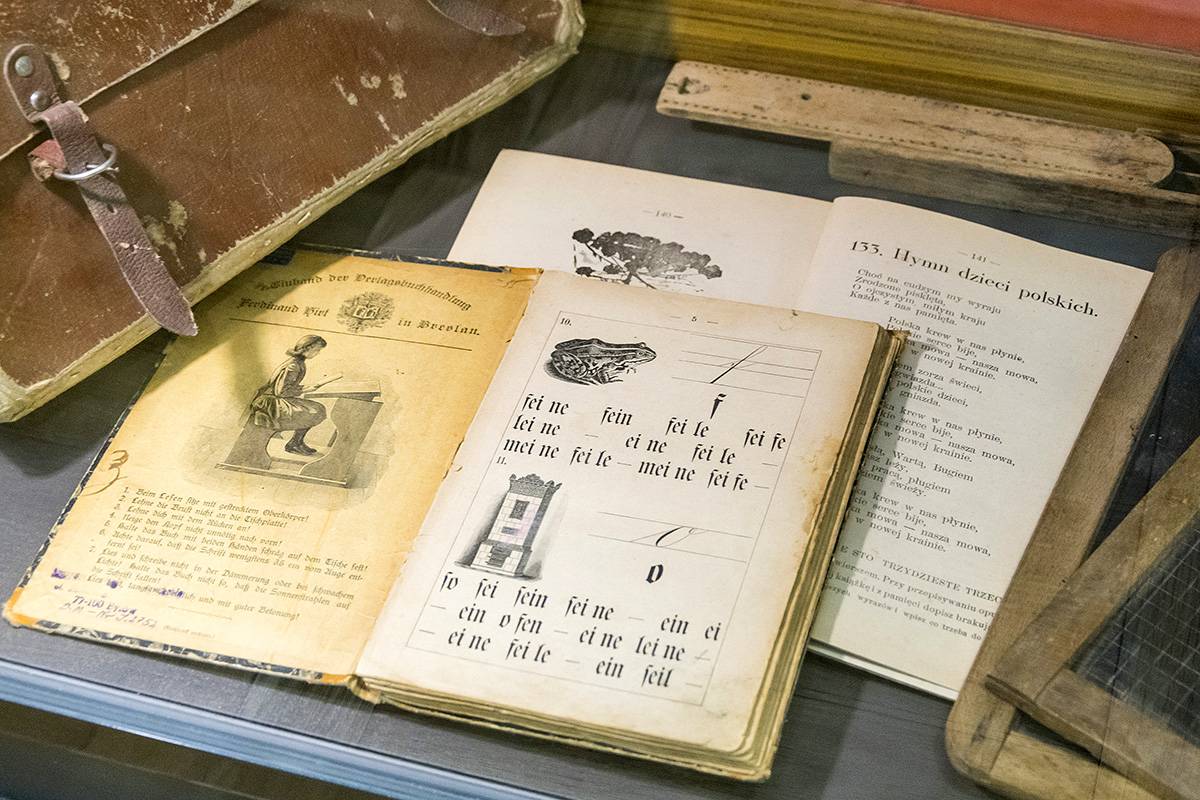 Einband der Verlagsbuchhandlung
Ferdinand Hirt in Breslau.
1. Beim Leſen ſitze mit geſtrecktem Oberkörper!
2. Lehne die Bruſt nicht an die Tiſchplatte!
3. Lehne dich mit dem Rücken an!
4. Neige den Kopf nicht unnötig nach vorn!
5. Halte das Buch mit beiden Händen ſchräg auf dem Tiſche feſt!
6. Achte darauf, daß die Schrift wenigſtens 35 cm vom Auge ent-
fernt ſei!
7. Lies und ſchreibe nicht in der Dämmerung oder bei ſchwachem
Lichte! Halte das Buch nicht ſo, daß die Sonnenſtrahlen auf
die Schrift fallen!
Lies langſam und mit guter Betonung!
— 5 —
10.
ſ
ſei ne ſein ſei le ſei ſe
lei ne — ei ne ſei le —
mei ne ſei le — mei ne ſei ſe —
11.
o
ſo ſei ſein ſei ne — ein ei
— ein o fen — ei ne lei ne —
— ei ne ſei le — ein ſeil —
— 140 —
— 141 —
133. Hymn dzieci polskich.
Choć na cudzym my wyraju
Zrodzone pisklęta,
O ojczystym miłym kraju
Każde z nas pamięta.
Polska krew w nas płynie,
Polskie serce bije,
mowa — nasza mowa,
w nowej krainie.
zorza świeci,
gwiazda...
polskie dzieci,
gniazda.
krew w nas płynie,
serce bije,
mowa — nasza mowa,
w nowej krainie.
Wartą, Bugiem
leży,
pracą, pługiem
świeży.
krew w nas płynie,
serce bije,
mowa — nasza mowa,
w nowej krainie.
STO TRZYDZIESTE
wierszem. Przy przepisywaniu
książkę i z pamięci dopisz
wyrazów i wpisz co trzeba do